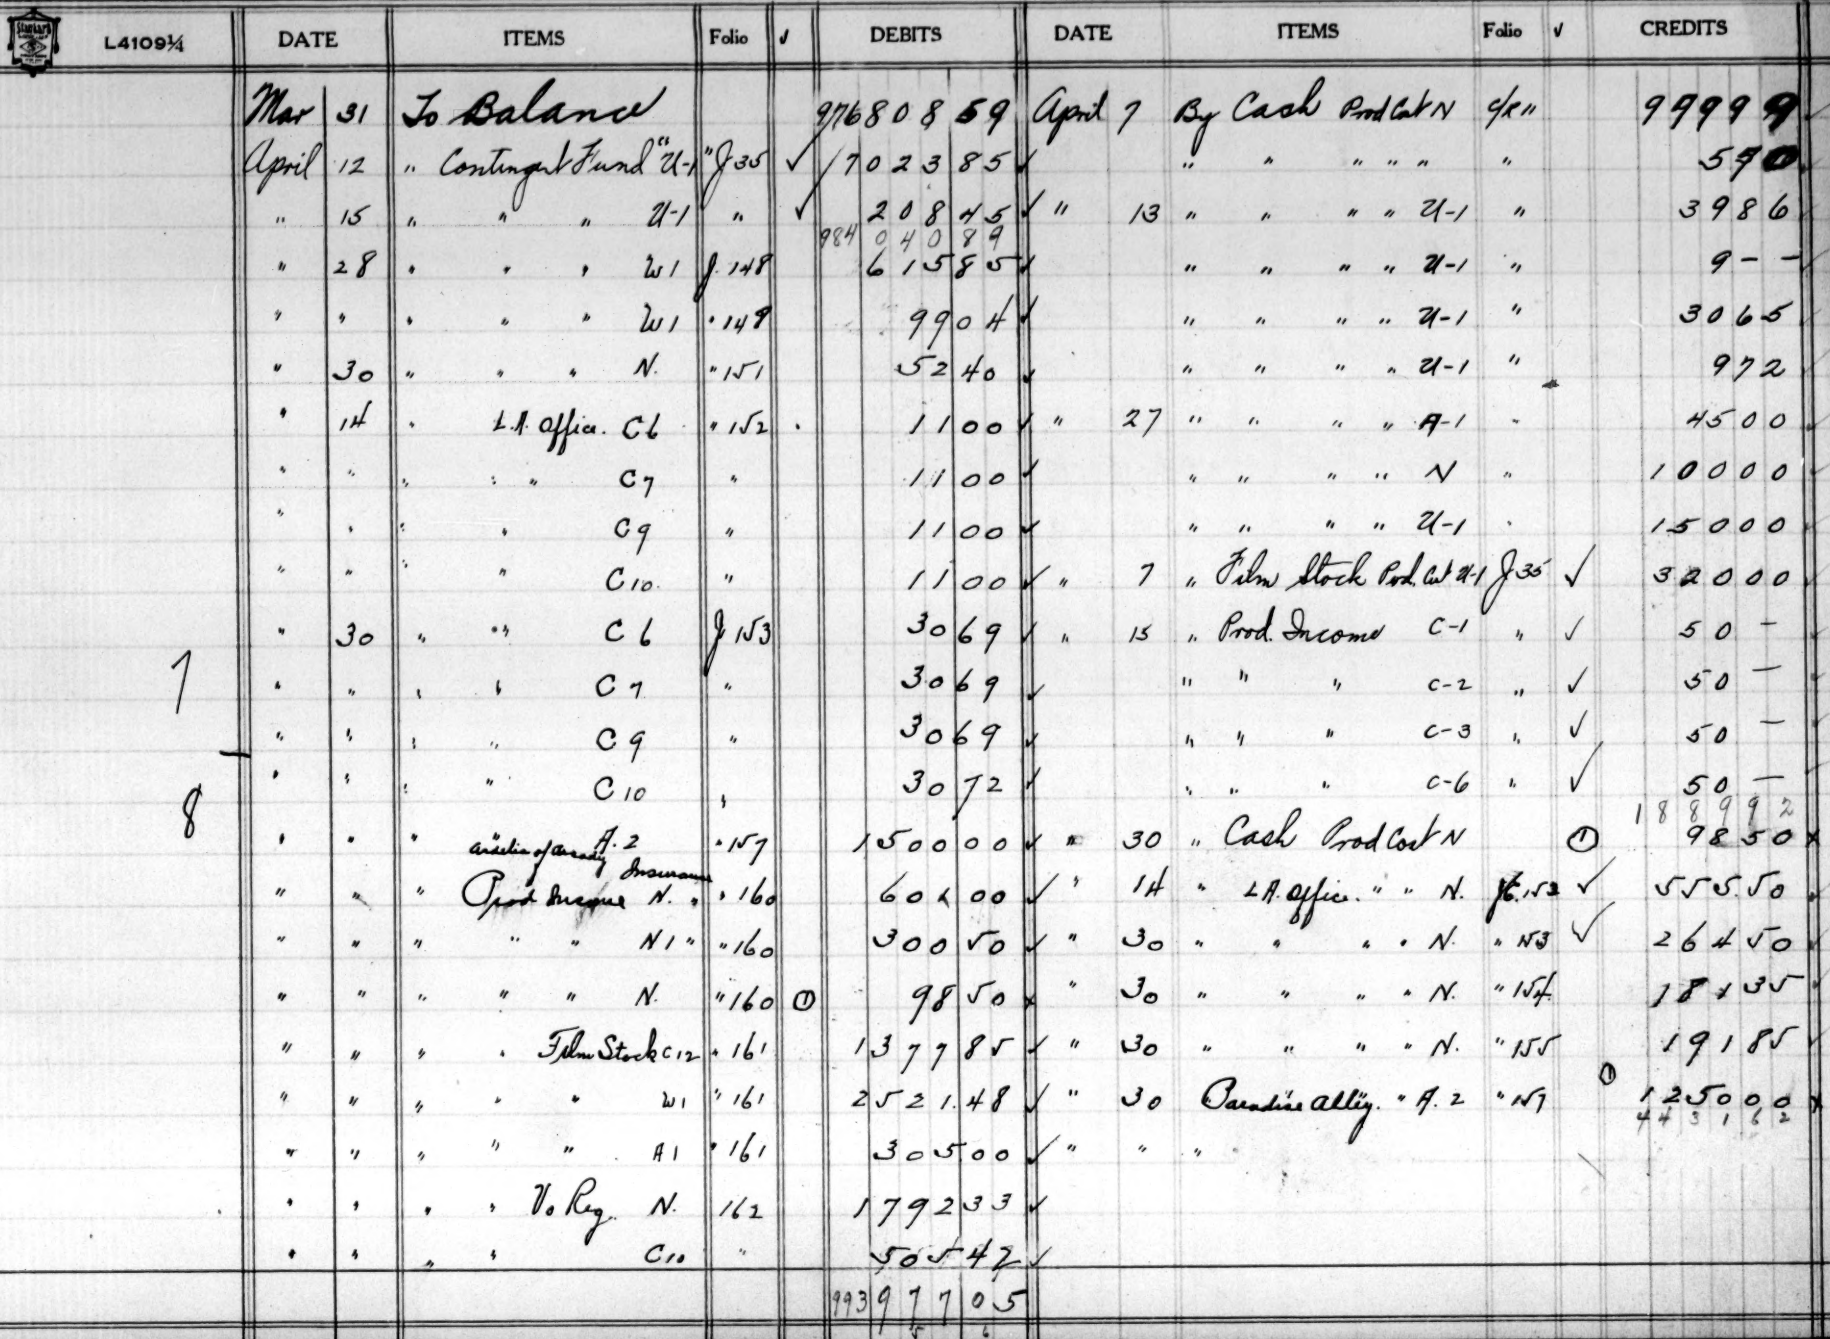 Standard
L4109¼ DATE ITEMS Folio ✓ DEBITS DATE ITEMS Folio ✓ CREDITS
Mar 31 To Balance 976808 59 April 7 By Cash Prod Cost N C/R 11 999 99
April 12 " Contingent Fund "U-1" J 35 ✓ 7023 85 ✓ " " " " " " 5 90
" 15 " " " U-1 " ✓ 208 45 ✓ " 13 " " " " U-1 " 39 86
984 040 89
" 28 " " " W1 J. 148 615 85 ✓ " " " " U-1 " 9 - -
" " " " " W1 " 148 99 04 ✓ " " " " U-1 " 30 65
" 30 " " " N. " 151 52 40 ✓ " " " " U-1 " 9 72
" 14 " L.A. Office. C6 " 152 11 00 ✓ " 27 " " " " A-1 " 45 00
" " " " " C7 " 11 00 ✓ " " " " N " 100 00
" " " " C9 " 11 00 ✓ " " " " U-1 " 150 00
" " " " C10. " 11 00 ✓ " 7 " Film Stock Prod. Cost U-1 J 35 ✓ 320 00
" 30 " " " C6 J 153 30 69 ✓ " 15 " Prod. Income C-1 " ✓ 50 -
7 " " " " C7 " 30 69 ✓ " " " C-2 " ✓ 50 -
" " " " C9 " 30 69 ✓ " " " C-3 " ✓ 50 -
8 " " " " C10 " 30 72 ✓ " " " C-6 " ✓ 50 -
1889 92
" " " A.2 " 157 1500 00 ✓ " 30 " Cash Prod Cost N ① 98 50 x
Insurance
" " " Prod Income N. " " 160 60 00 ✓ " 14 " L.A. Office. " " N. 153 ✓ 555.50
" " " " " N1 " " 160 300 50 ✓ " 30 " " " " N. " 153 ✓ 264 50
" " " " " N. " 160 ① 98 50 x " 30 " " " " N. " 154 181 35
" " " " Film Stock C12 " 161 1377 85 ✓ " 30 " " " " N. " 155 191 85
" " " " " W1 " 161 2521.48 ✓ " 30 Paradise Alley. " A.2 " 157 ① 1250 00 x
4431 62
" " " " " A1 " 161 305 00 ✓ " " "
" " " " Vo Reg. N. 162 1792 33 ✓
" " " " C10 " 505 42 ✓
993 977 05
5 6